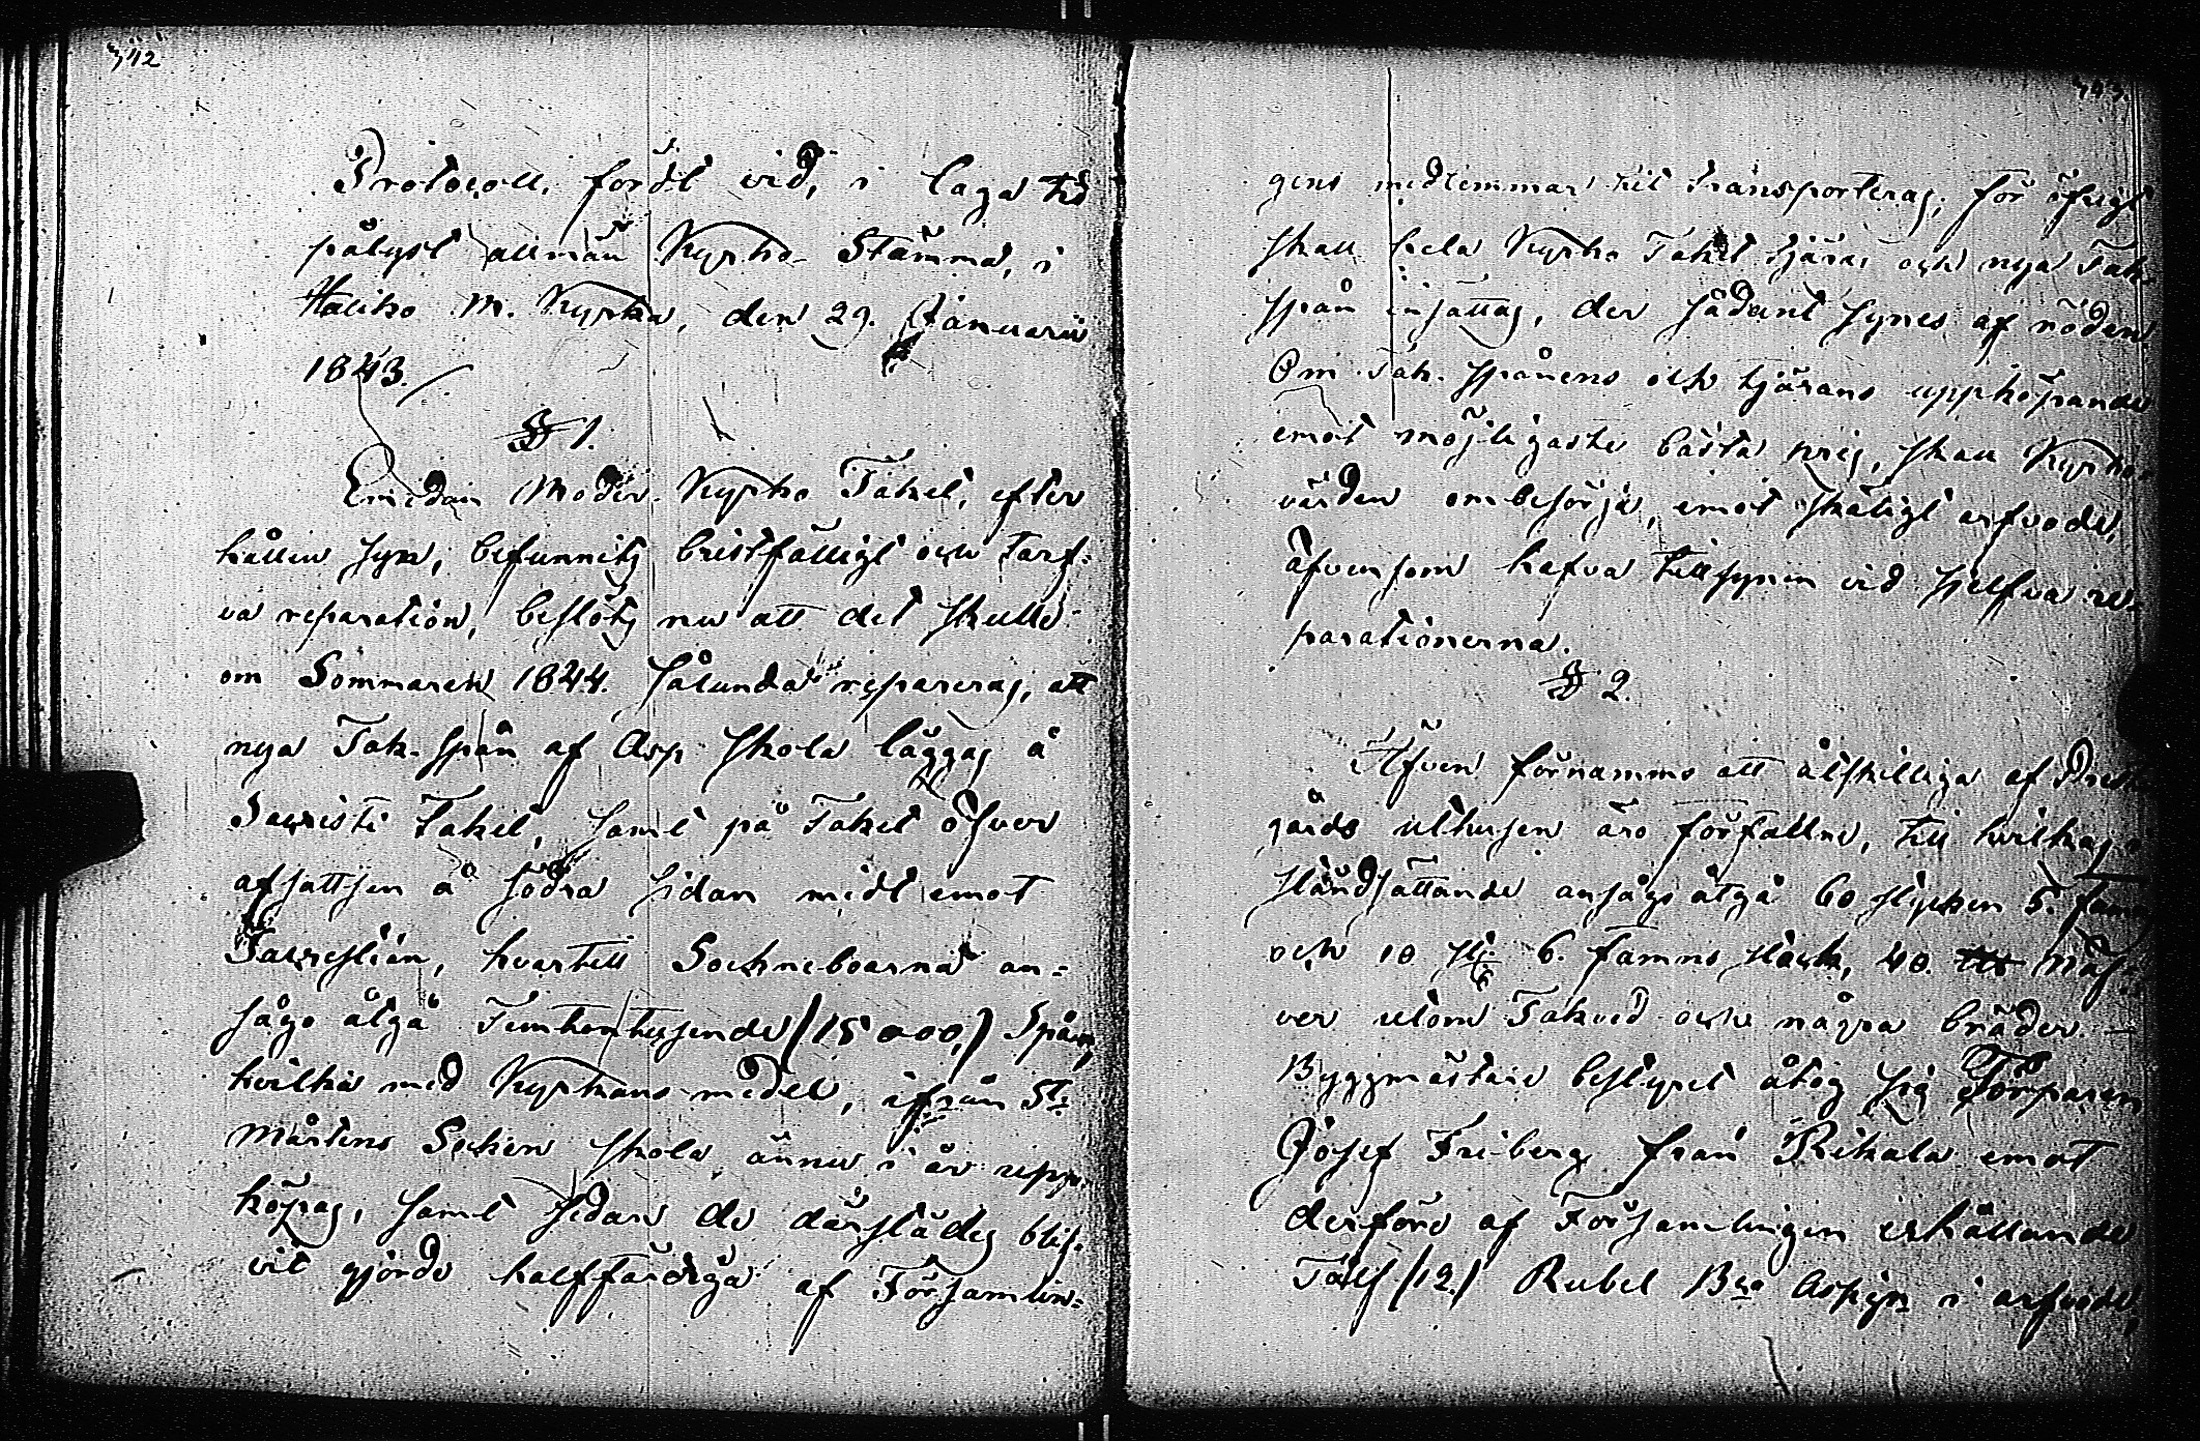 342
Protocoll, fördt vid, i laga tid
pålyst allmän Kyrko-Stämma, i
Haliko M. Kyrka, den 29. Januarii
1843.
§ 1.
Emedan Moder-Kyrko Taket, efter
hållen syn, befunnits bristfälligt och tarf-
va reparation, beslöts nu att det skulle
om Sommaren 1844. sålunda repareras, att
nya Tak-spån af Asp skola läggas å
Sacristi Taket, samt på Taket öfver
afsattsen å södra sidan midt emot
Sacristian, hvartill Sockneboarna an=
sågo åtgå Femton tusende (15000,) Spån,
hvilka med Kyrkans medel, ifrån St:
Mårtens Socken skola ännu i år upp-
köpas, samt sedan de därstädes blif-
vit gjorde halffärdiga af Församlin=
343.
gens medlemmar till transporteras; för öfrigt
skall hela Kyrko Taket tjäras och nya Tak
spån insättas, der sådant synes af nöden
Om Tak-spånens och tjärans uppköpande
emot möjligaste bästa pris, skall Kyrko-
värden ombesörja, emot skäligt arfvode,
äfvensom hafva tillsynen vid sjelfva re-
parationerna.
§ 2.
Äfven förnamms att åtskilliga af Prest
gårds uthusen äro förfallne, till hvilkas
ståndsättande ansågs åtgå 60 stycken 5. famns
och 10 st. 6. famns stock, 40. Näf-
ver utom Takved och några bräder. —
Byggmästare bestyret åtog sig Torparen
Josef Friberg från Rikala emot
derföre af Församlingen erhållande
Tolf (12.) Rubel B:co Assign i arfvode,